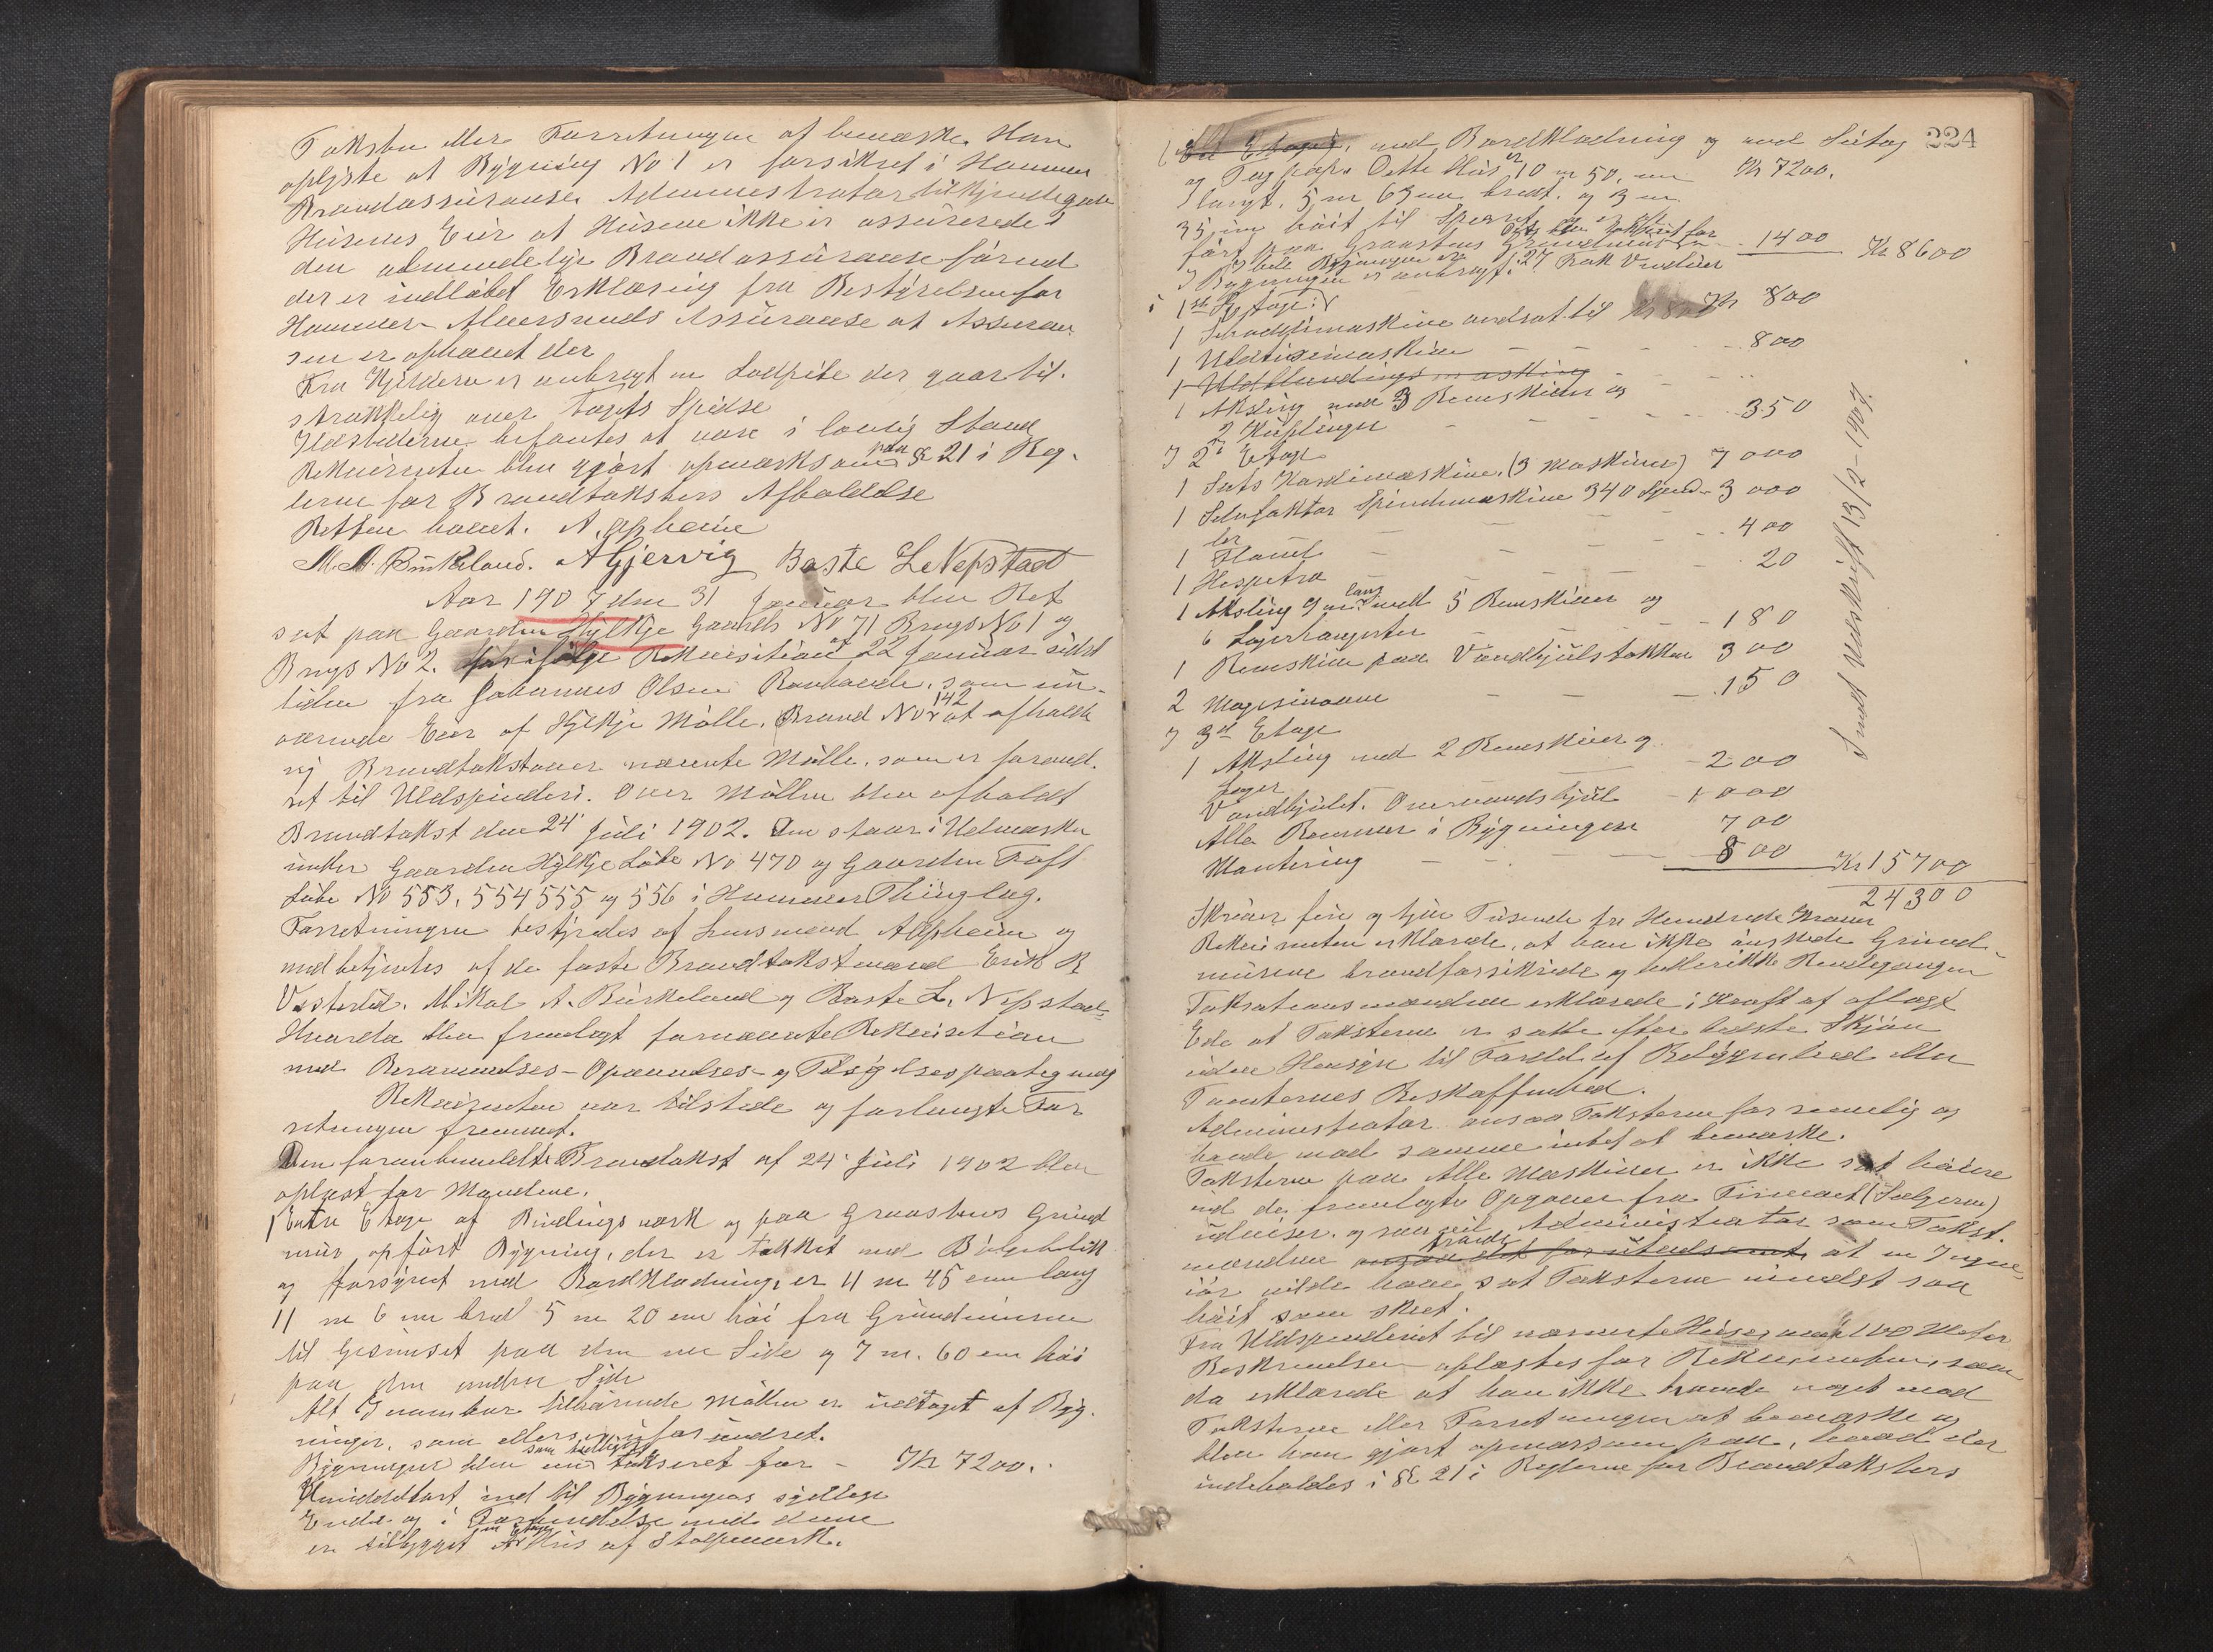 Taksten eller Forretningen at bemærke. Han
oplyste at Bygning No 1 er forsikret i Hammer
Brandassurance. Administrator tilkjendegav
Husenes Eier at Husene ikke er assurerede i
den almindelige Brandassurance førend
der er indløbet Erklæring fra Bestyrelsen for
Hammer Assurance at Assuran
sen er ophævet der
Fra Kjelderen er anbragt en Lodpibe der gaar til-
strækkelig over Tagets Spidse
Ildstederne befantes at være i lovlig Stand
Rekvirenten blev gjort opmærksom paa § 21 i Reg-
lerne for Brandtaksters Afholdelse
Retten hævet. A. Apheim
M. A. Birkeland. A Gjervig Baste L Nepstad
Aar 1907 den 31 Januar blev Ret
sat paa Gaarden Hylkje Gaards No 71 Brugs No 1 og
Brugs No 2. ifølge Rekvisition af 22 Januar sidst
leden fra Johannes Olsen, som nu-
værende Eier af Hylkje Mølle. Brand No 142 at afholde
ny Brandtakst over nævnte Mølle. som er forand-
ret til Uldspinderi. Over Møllen blev afholdt
Brandtakst den 24 Juli 1902. Den staar i Udmarken
under Gaarden Hylkje Løbe No 470 og Gaarden Toft
Løbe No 553, 554 555 og 556 i Hammer Thinglag.
Forretningen bestyredes af Lensmand Apheim og
med betjentes af de faste Brandtakstmænd Erik R
Vesterlid. Mikal A. Birkeland og Baste L. Nepstad
Hvorda blev fremlagt fornævnte Rekvisition
med Berammelses- Opnævnelses- og Tilsigelsespaategning
Rekvirenten var tilstede og forlangte For
retningen fremmet.
Den foranbemeldte Brandtakst af 24 Juli 1902 blev
oplæst for Mændene.
1 En to Etage af Bindingsværk og paa Graastens Grund
mur opført Bygning, der er tækket med Bølgeblik
og forsynet med Bordklædning, er 11 m 45 cm lang
11 m 6 cm bred 5 m 20 cm høi fra Grundmuren
til Gesimset paa den ene Side og 7 m. 60 cm høi
paa den anden Side
Alt Inventar tilhørende Møllen er udtaget af Byg-
ningen, som ellers er uforandret.
Bygningen som tidligere blev takseret for - Kr 7200.
Umiddelbart ind til Bygningens sydlige
Ende og i Forbindelse med denne
er tilbygget en Etages Hus af Stolpeværk.
224
En Etages, med Bordklædning og med Sutag
og Tagpap. Dette Hus er 10 m 50. cm Kr 7200.
langt. 5 m 63 cm bredt. og 3 m
35 cm høit til Sperret og er op
ført paa Graastens Grundmur
Dette blev takseret for 1400 Kr 8600
I hele Bygningen er 27 Fak Vinduer
I Bygningen er anbragt:
i 1ste Etage:
1 Schoddimaskine ansat til Kr 800
1 Uldrivemaskine - - - 800
1 Uldblandingsmaskine
1 Aksling med 3 Remskiver og
2 Kuplinger - - - 350
I 2' Etage
1 Sats Kardemaskine (3 Maskiner) 7000
1 Selvfaktor Spindemaskine 340 Spind- 3000
ler - - - 400
1 - - - 20
1 Hespetræ
1 Aksling 9 m lang med 5 Remskiver og
6 Lagerhængester - - 180
1 Remskive paa Vandhjulstokken 300
2 - - 150
I 3de Etage
1 Aksling med 2 Remskiver og
Lager - 200
Vandhjulet. Overvandshjul - 1000
Alle Remmer i Bygningen 700
Montering - - - 800 Kr 15700
24300
Skriver fire og tyve Tusende tre Hundrede Kroner
Rekvirenten erklærede, at han ikke ønskede Grund-
murene brandforsikrede og hellerikke Rendegangen
Taksationsmændene erklærede i Kraft af aflagt
Ede at Taksterne er satte efter bedste Skjøn
uden Hensyn til Fordel af Beliggenhed eller
Tomternes Beskaffenhed.
Administrator ansaa Taksterne for rimelig og
havde mod samme intet at bemærke.
Taksterne paa Alle Maskiner er ikke sat høiere
end de fremlagte Opgaver fra Firmaet (Sælgeren)
udviser. og saavel Administrator som Takst-
mændene troede ansaa det for utvilsomt at en Ingeni-
iør vilde have sat Taksterne mindst saa
høit som skeet.
Fra Uldspinderiet til nærmeste Huser er 100 Meter
Beskrivelsen oplæstes for Rekvirenten, som
da erklærede at han ikke havde noget mod
Taksterne eller Forretningen at bemærke og
blev han gjort opmærksom paa, hvad der
indeholdes i § 21 i Reglerne for Brandtaksters
Sendt Udskrift 13/2-1907.